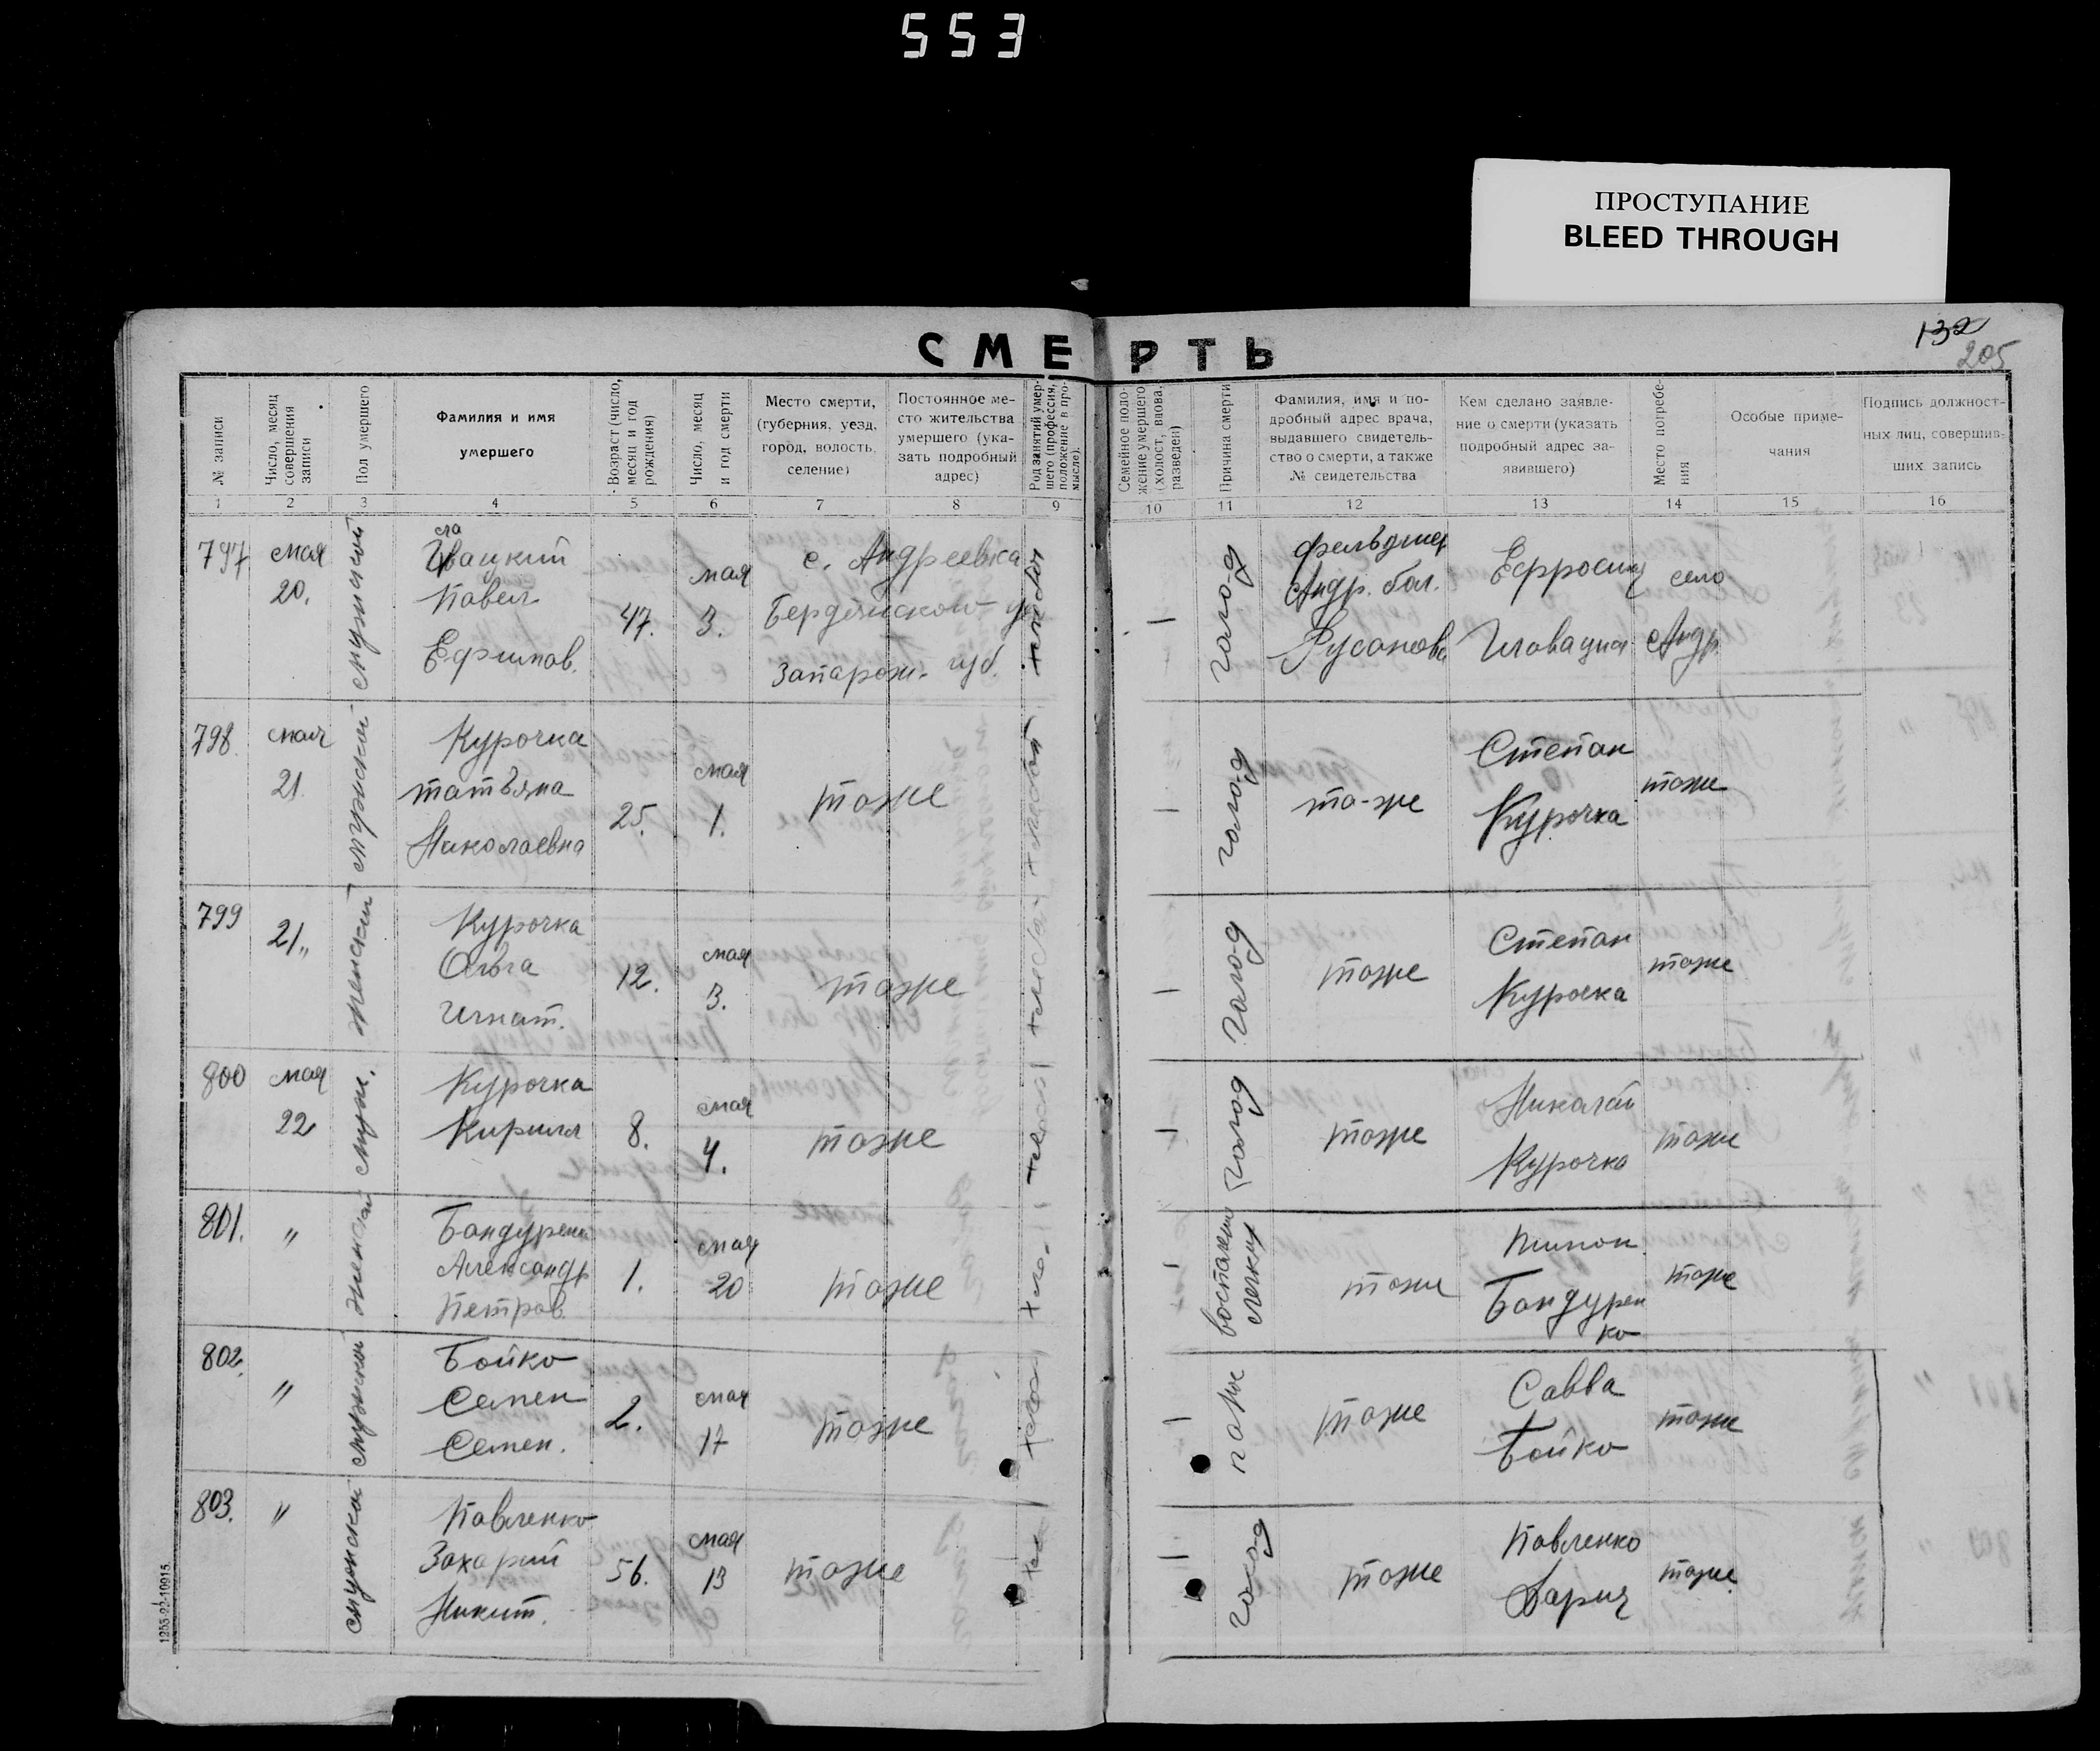 553
ПРОСТУПАНИЕ
BLEED THROUGH
132
205
СМЕРТЬ
№ записи
Число, месяц
совершения
записи
Пол умершего
Фамилия и имя
умершего
Возраст (число,
месяц и год
рождения)
Число, месяц
и год смерти
Место смерти,
(губерния, уезд,
город, волость,
селение)
Постоянное ме-
сто жительства
умершего (ука-
зать подробный
адрес)
Род занятий умер-
шего (профессия,
положение в про-
мысле).
Семейное поло-
жение умершего
(холост, вдова,
разведен)
Причина смерти
Фамилия, имя и по-
дробный адрес врача,
выдавшего свидетель-
ство о смерти, а также
№ свидетельства
Кем сделано заявле-
ние о смерти (указать
подробный адрес за-
явившего)
Место погребе-
ния
Особые приме-
чания
Подпись должност-
ных лиц, совершив-
ших запись
1 2 3 4 5 6 7 8 9 10 11 12 13 14 15 16
797
мая
20.
мужской
Павел
Ефимов.
47.
мая
3.
с. Андреевка
Бердянского у
Запарож. губ.
—
голод
фельдшер
Андр. бол.
Русанова
Ефросин
Иловацкая
село
Андр.
798.
мая
21.
мужской
Курочка
татьяна
Николаевна
25.
мая
1.
тоже
—
голод
то-же
Степан
Курочка
тоже
799
21„
женский
Курочка
Ольга
Игнат.
12.
мая
3.
тоже
—
голод
тоже
Степан
Курочка
тоже
800
мая
22
мужс.
Курочка
Кирилл
8.
мая
4.
тоже
—
голод
тоже
Николай
Курочка
тоже
801.
"
женской
Бандурен
Александр
Петров.
1.
мая
20
тоже
—
воспаление
легких
тоже
Бандурен
ко
тоже
802.
"
мужской
Бойко
Семен
Семен.
2.
мая
17
тоже
—
тоже
тоже
Савва
Бойко
тоже
803.
"
мужской
Павленко
Захарий
Никит.
56.
мая
13
тоже
—
голод
тоже
Павленко
Дария
тоже
1255-22-10915